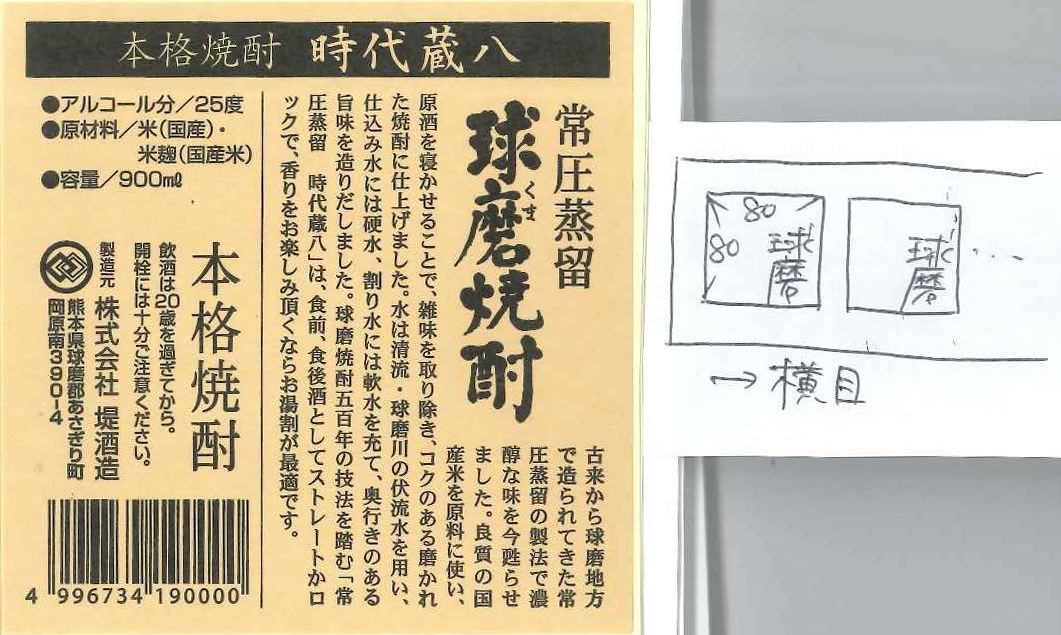 本格焼酎 時代蔵八
常圧蒸留
球磨焼酎
くま
古来から球磨地方
で造られてきた常
圧蒸留の製法で濃
醇な味を今甦らせ
ました。良質の国
産米を原料に使い、
原酒を寝かせることで、雑味を取り除き、コクのある磨かれ
た焼酎に仕上げました。水は清流・球磨川の伏流水を用い、
仕込み水には硬水、割り水には軟水を充て、奥行きのある
旨味を造りだしました。球磨焼酎五百年の技法を踏む「常
圧蒸留 時代蔵八」は、食前、食後酒としてストレートかロ
ックで、香りをお楽しみ頂くならお湯割が最適です。
●アルコール分／25度
●原材料／米(国産)・
米麹(国産米)
●容量／900㎖
本格焼酎
飲酒は20歳を過ぎてから。
開栓には十分ご注意ください。
製造元 株式会社 堤酒造
熊本県球磨郡あさぎり町
岡原南390-4
4 996734 190000
80
80
球磨
球磨
…
→ 横目